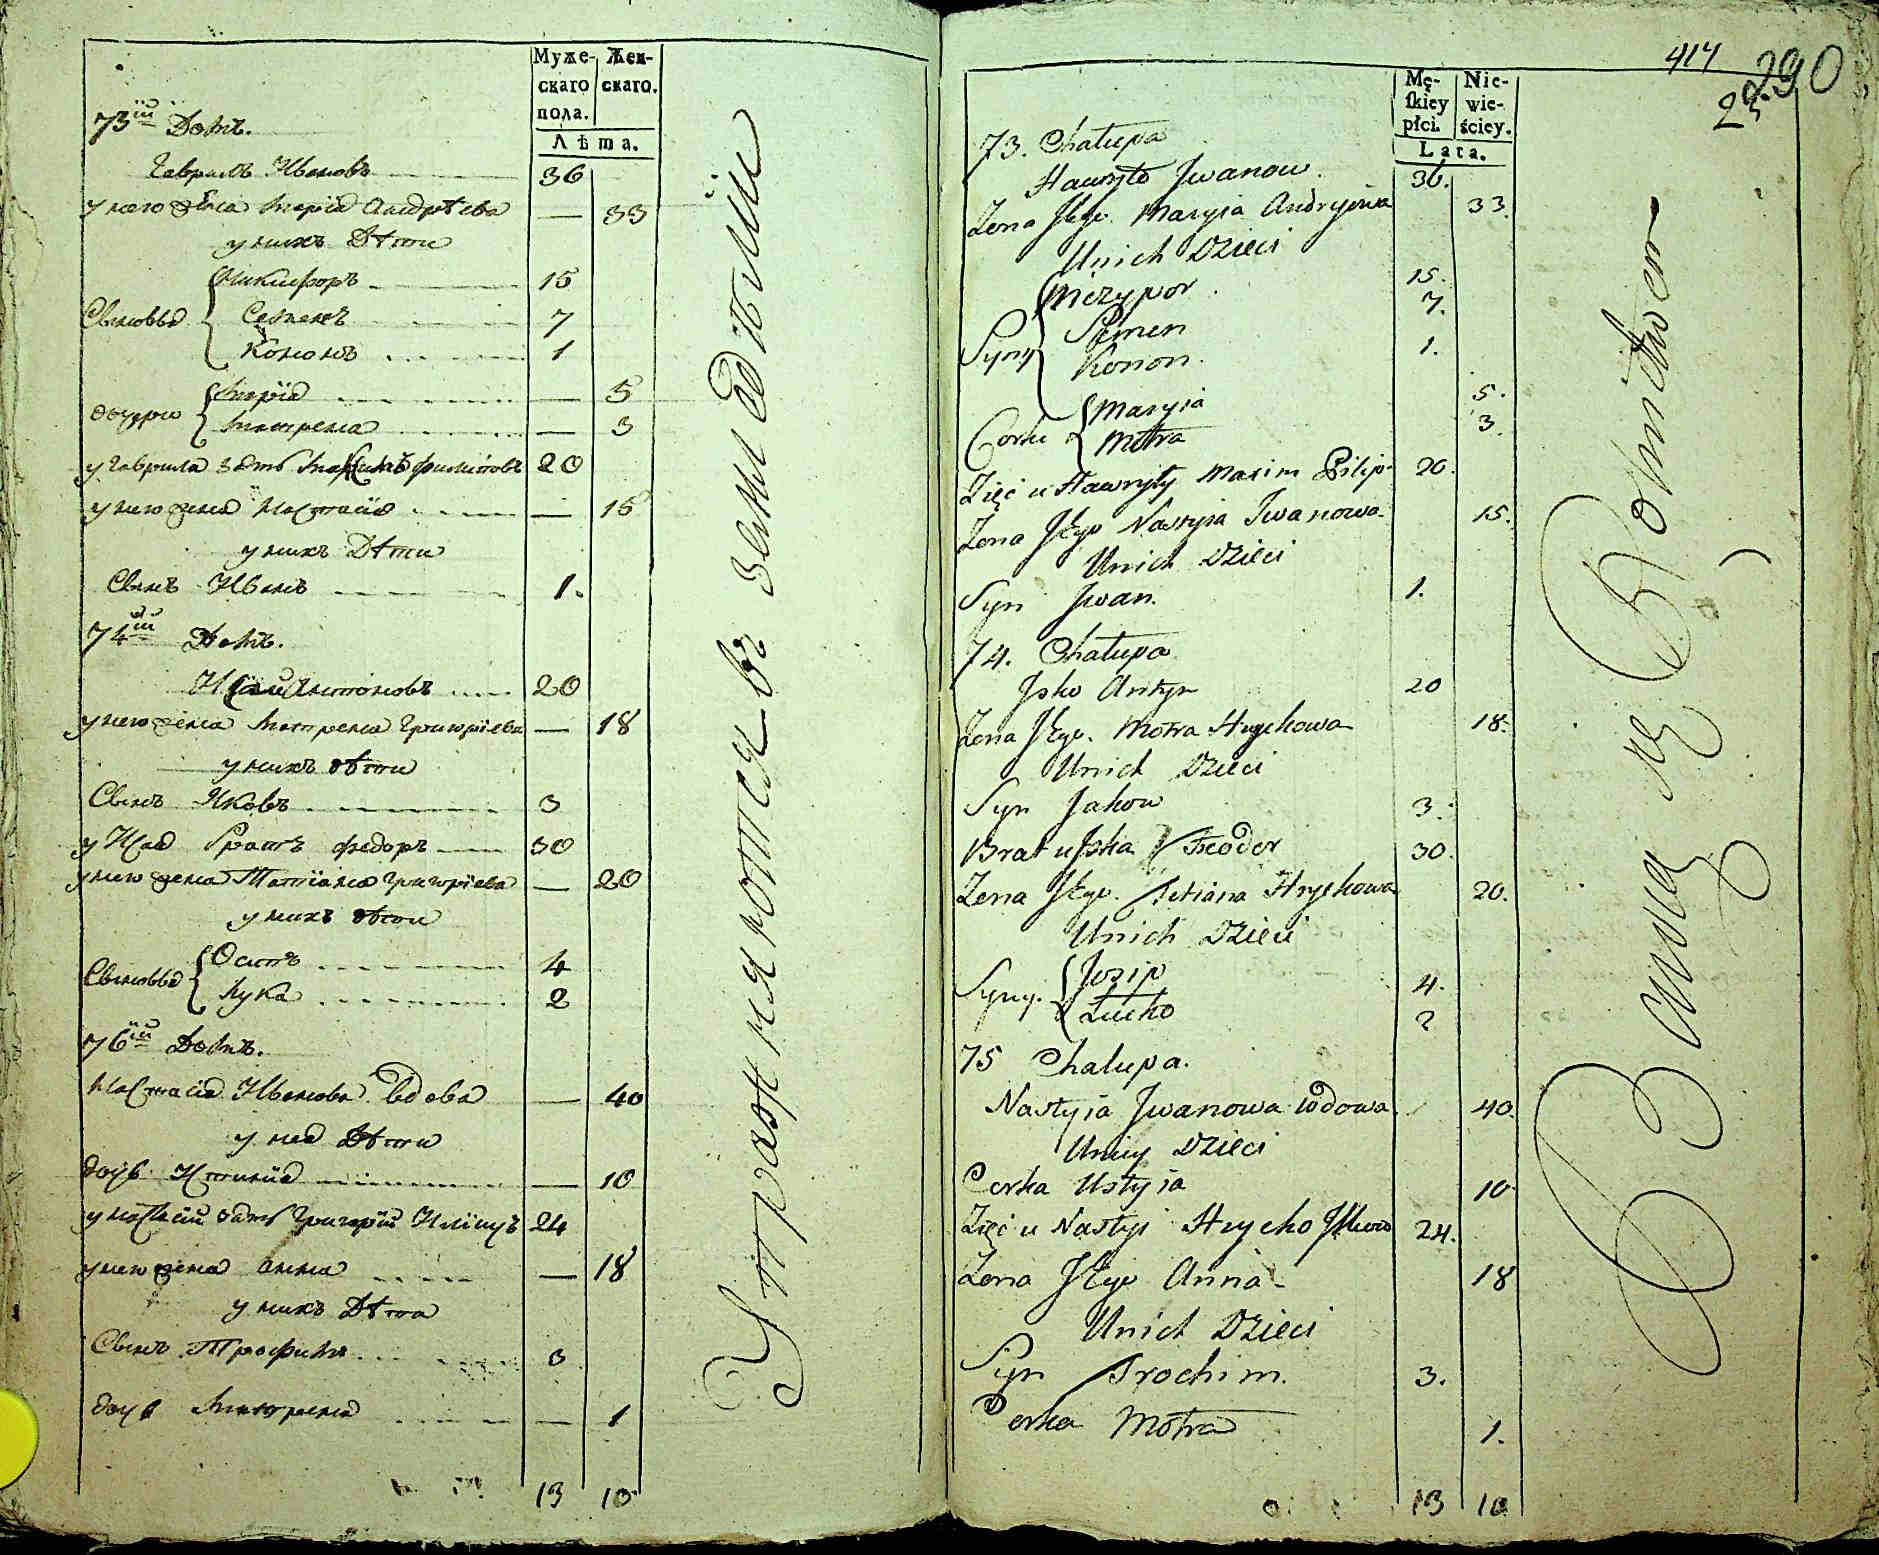 Муже-
скаго
пола.
Жен-
скаго.
Лѣта.
73й Домъ.
Гаврилъ Ивановъ 36
у него жена Марія Андрѣева — 33
у нихъ Дѣти
Никифоръ 15
Сыновья Семенъ 7
Кононъ 1
дочери Марія — 5
Матрена — 3
у Гаврила зять Максимъ Филиповъ 20
у него жена Настасія — 15
у нихъ Дѣти
Сынъ Иванъ 1.
74й Домъ.
Исай Антоновъ 20
у него жена Матрена Григоріева — 18
у нихъ дѣти
Сынъ Яковъ 3
у Исая братъ федоръ 30
у него жена Татіана Григоріева — 20
у нихъ дѣти
Сыновья Осипъ 4
Лука 2
76й Домъ.
Настасія Иванова вдова — 40
у нея Дѣти
дочь Устинія — 10
у Настасіи зять Григорій 24
у него жена Анна — 18
у нихъ Дѣти
Сынъ Трофимъ 3
дочь Матрена — 1
13 10
Упражняются въ земледѣліи
414
290
Mę-
skiey
płci.
Nie-
wie-
ściey.
Lata.
73. Chałupa
Hawryło Jwanow. 36.
Zona Jego Maryia Andryiowa 33.
Unich Dzieci
Niczypor 15.
Syny Semen 7.
Konon. 1.
Corki Maryia 5.
Motra 3.
Zięć u Hawryły Maxim Pilip. 20.
Zona Jego Nastyia Jwanowa 15.
Unich Dzieci
Syn Jwan. 1.
74. Chałupa
Jsko Antyn 20
Zona Jego. Motra Hrychowa 18.
Unich Dzieci
Syn Jakow 3.
Brat u Jska Fieodor 30.
Zona Jego. Tetiana Hrychowa 20.
Unich Dzieci
Syny. Josip 4.
Łucko 2
75 Chałupa.
Nastyia Jwanowa wdowa. 40.
Uniey Dzieci
Corka Ustyia 10.
Zięć u Nastyi Hrycho 24.
Zona Jego Anna 18
Unich Dzieci
Syn Trochim. 3.
Corka Motra 1.
13 10